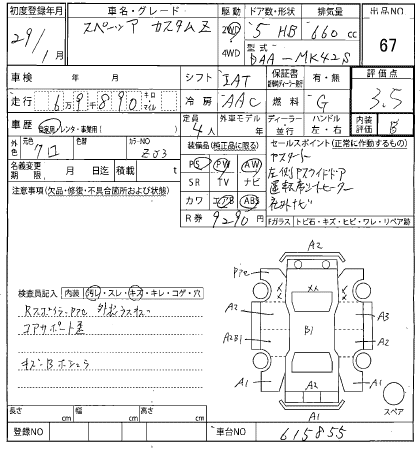 初度登録年月 車名・グレード 駆動 ドア数・形状 排気量 出品NO
29/1月 スペーシア カスタムZ 2WD 4WD 5 HB 660 cc 67
型式 DAA-MK42S
車検 年 月 シフト IAT 保証書 有・無 評価点
走行 6万9千890 キロ マイル 冷房 AAC 燃料 G 3.5
車歴 自家用 レンタ・事業用( ) 定員 4人 外車モデル 年 ディーラー 並行 ハンドル 左・右 内装評価 B
外色 元色 クロ 色替 カラーNO ZJ3
装備品(純正品に限る) セールスポイント(正常に作動するもの)
名義変更期限 月 日迄 積載 t
PS PW AW
SR TV ナビ
カワ エアB ABS
R券 9290円
左側Pスライドドア
運転席シートヒーター
社外ナビ
注意事項(欠品・修復・不具合箇所および状態)
Fガラス トビ石・キズ・ヒビ・ワレ・リペア跡
検査員記入 内装 汚レ・スレ・キズ・キレ・コゲ・穴
コアサポート
キズ・Bホシュウ
A2
A2
A3
B1
A2B1
A2
A1
A2
A1
A1
スペア
長さ cm 幅 cm 高さ cm
登録NO 車台NO 615855